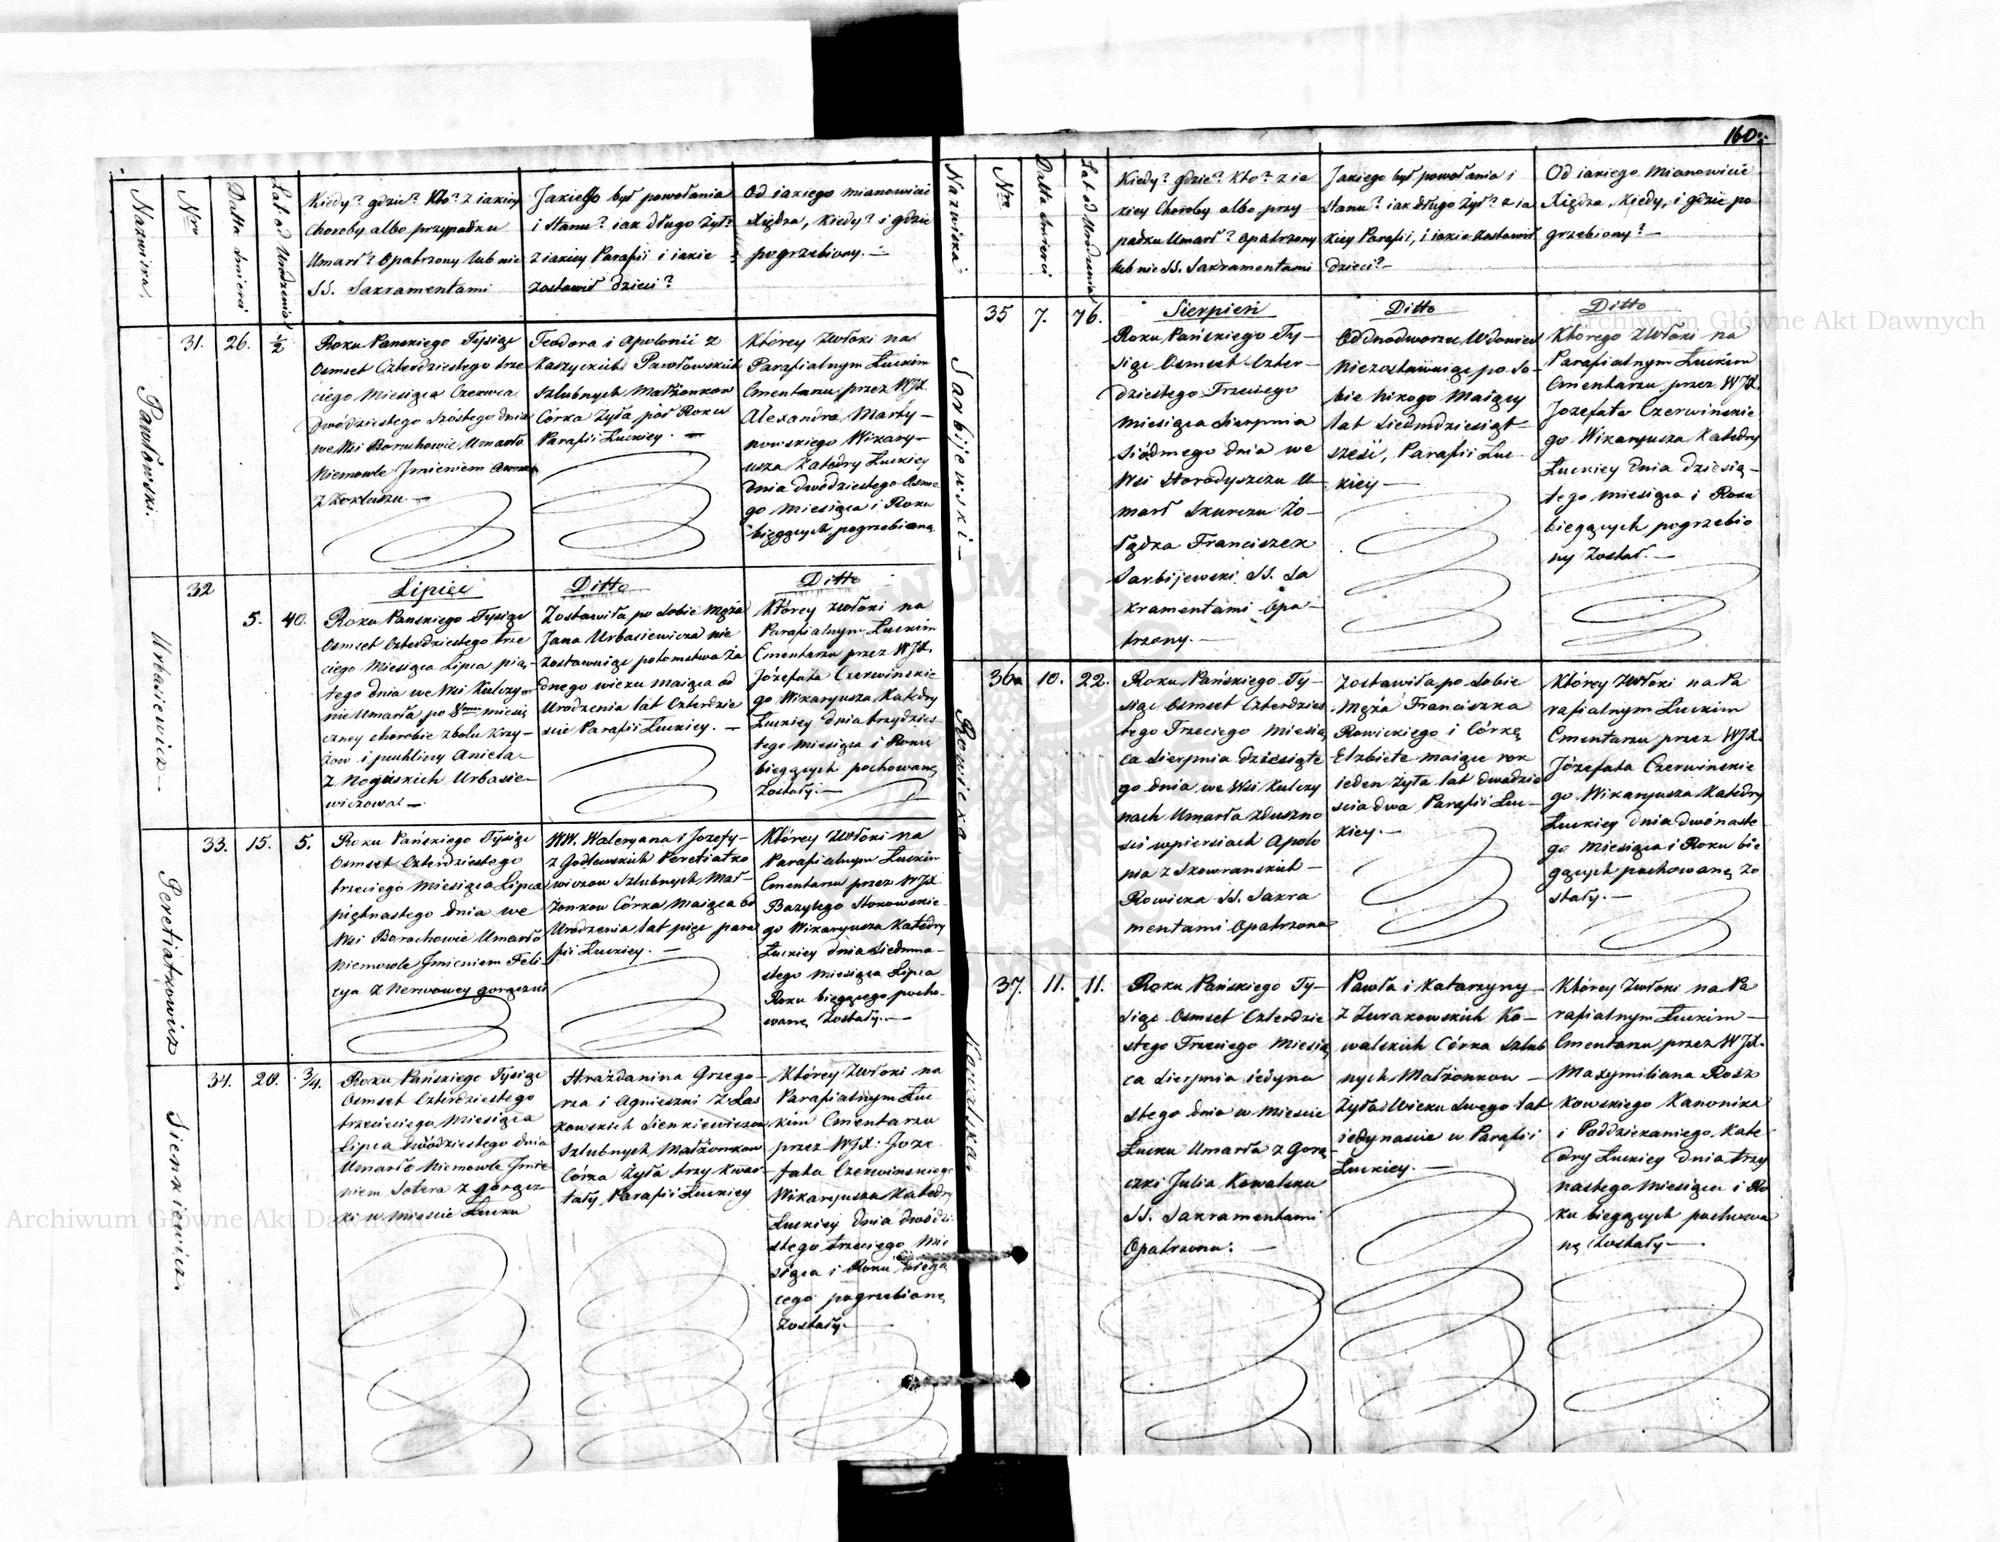 160.
Nazwiska.
Nro
Datta śmierci
Lat od Urodzenia
Kiedy? gdzie? Kto? z iakiey
Choroby albo przypadku
Umarł? Opatrzony lub nie
SS. Sakramentami
Jakiego był powołania
i Stanu? iak długo Żył?
z iakiey Parafii i iakie
zostawił dzieci?
Od iakiego mianowicie
Xiędza, Kiedy? i gdzie
pogrzebiony.
Pawłowski.
31.
26.
½
Roku Panskiego Tysiąc
Osmset Czterdziestego trze
ciego Miesiąca Czerwca
Dwódziestego Szóstego dnia
we Wsi Boruchowie Umarło
Niemowle Jmieniem Anna
z Kokluszu
Teodora i Apolonii z
Kaszyckich Pawłowskich
Szlubnych Małżonkow
Córka Żyła pół Roku
Parafii Łuckiey.
Którey Zwłoki na
Parafialnym Łuckim
Cmentarzu przez WJX.
Alexandra Marty-
nowskiego Wikary-
usza Katedry Łuckiey
dnia dwódziestego Osme
go Miesiąca i Roku
bieżących pogrzebioną
Urbasiewicz
32
5.
40.
Lipiec
Roku Pańskiego Tysiąc
Osmset Czterdziestego trze
ciego Miesiąca Lipca pią-
tego dnia we Wsi Kulczy
nie Umarła po 8miu miesię
czney chorobie z bolu Krzy-
żow i puchliny Aniela
z Urbasie-
wiczowa
Ditto
Zostawiła po Sobie Męża
Jana Urbasiewicza nie
Zostawuiąc potomstwa Ża
dnego wieku maiąca od
Urodzenia lat Czterdzie
ście Parafii Łuckiey.
Ditto
Którey zwłoki na
Parafialnym Łuckim
Cmentarzu przez WJX.
Józefata Czerwinskie
go Wikaryusza Katedry
Łuckiey dnia
tego Miesiąca i Roku
bieżących pochowane
Zostały.
Peretiatkowicz
33.
15.
5.
Roku Pańskiego Tysiąc
Osmset Czterdziestego
trzeciego Miesiąca Lipca
piętnastego dnia we
Wsi Borochowie Umarło
Niemowle Jmieniem Feli-
cya z Nerwowey gorączki
WW. Waleryana i Jozefy
z Godlewskich Peretiatko
wiczow Szlubnych Mał-
żonkow Córka Maiąca od
Urodzenia lat pięc para
fii Łuckiey.
Którey Zwłoki na
Parafialnym Łuckim
Cmentarzu przez WJX.
Bazylego Stokowskie
go Wikaryusza Katedry
Łuckiey dnia Siedmna-
stego miesiąca Lipca
Roku bieżącego pocho-
wane Zostały.
Sienkiewicz.
34.
20.
¾.
Roku Pańskiego Tysiąc
Osmset Czterdziestego
trzeciego Miesiąca
Lipca dwódziestego dnia
Umarło Niemowle Jmie-
niem Sotera z gorącz-
ki w Miescie Łucku
Hrażdanina Grzego-
rza i Agnieszki z Las
kowskich Sienkiewiczow
Szlubnych Małżonkow
Córka Żyła trzy kwar-
tały Parafii Łuckiey
Którey Zwłoki na
Parafialnym Łuc-
kim Cmentarzu
przez WJX: Joze-
fata Czerwinskiego
Wikaryusza Katedry
Łuckiey dnia dwódzi
stego trzeciego Mie
siąca i Roku bieżą
cego pogrzebione
Zostały.
Nazwiska
Nro
Datta śmierci
Lat od Urodzenia
Kiedy? gdzie? Kto? z ia
kiey Choroby albo przy
padku Umarł? Opatrzony
lub nie SS. Sakramentami
Jakiego był powołania i
Stanu? iak długo Żył? z ia
kiey Parafii, i iakie Zostawił
dzieci?
Od iakiego Mianowicie
Xiędza, Kiedy, i gdzie po
grzebiony?
Sarbijewski
35
7.
76.
Sierpień
Roku Pańskiego Ty-
siąc Osmset Czter-
dziestego Trzeciego
Miesiąca Sierpnia
Siódmego dnia we
Wsi Horodyszczu U-
marł Skurczu Żo-
łądka Franciszek
Sarbijewski SS. Sa
kramentami Opa-
trzony.
Ditto
Oddnodworzec Wdowiec
Niezostawuiąc po So-
bie Nikogo Maiący
lat Siedmdziesiąt
sześć, Parafii Łuc-
kiey
Ditto
Którego Zwłoki na
Parafialnym Łuckim
Cmentarzu przez WJX.
Jozefata Czerwinskie
go Wikaryusza Katedry
Łuckiey dnia dziesią-
tego Miesiąca i Roku
bieżących pogrzebio
ny Został.
Rowicka
36
10.
22.
Roku Pańskiego Ty-
siąc Osmset Czterdzies
tego Trzeciego Miesią
ca Sierpnia dziesiąte
go dnia we Wsi Kulczy
nach Umarła z duszno
ści w piersiach Apolo
nia z Skowronskich
Rowicka SS. Sakra
mentami Opatrzona
Zostawiła po Sobie
Męża Franciszka
Rowickiego i Córkę
Elzbietę maiącą rok
ieden Żyła lat dwadzie
ścia dwa Parafii Łuc-
kiey.
Którey Zwłoki na Pa
rafialnym Łuckim
Cmentarzu przez WJX.
Józefata Czerwinskie
go Wikaryusza Katedry
Łuckiey dnia dwónaste
go Miesiąca i Roku bie
żących pochowane Zo
stały.
Kowalska
37.
11.
11.
Roku Pańskiego Ty-
siąc Osmset Czterdzie
stego Trzeciego Miesią
ca Sierpnia iedyna
stego dnia w Miescie
Łucku Umarła z Gorą-
czki Julia Kowalska
SS. Sakramentami
Opatrzona.
Pawła i Katarzyny
z Żurakowskich Ko-
walskich Córka Szlub
nych Małżonkow
Żyła Wieku Swego lat
iedynaście w Parafii
Łuckiey.
Którey Zwłoki na Pa
rafialnym Łuckim
Cmentarzu przez WJX.
Maxymiliana Rosz
kowskiego Kanonika
i Poddziekaniego Kate
dry Łuckiey dnia trzy
nastego Miesiąca i Ro
ku bieżących pochowa
ne Zostały
Archiwum Główne Akt Dawnych
Archiwum Główne Akt Dawnych